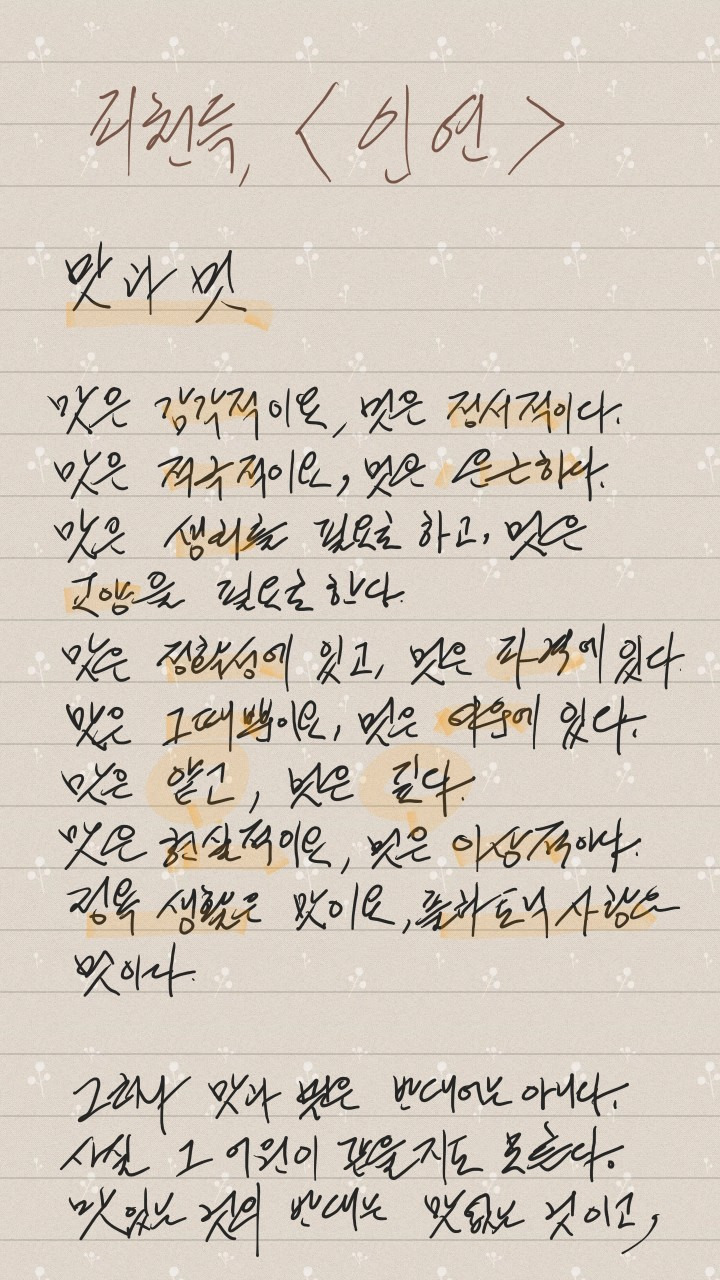 피천득, <인연>
맛과 멋
맛은 감각적이요, 멋은 정서적이다.
맛은 적극적이요, 멋은 은근하다.
맛은 생리를 필요로 하고, 멋은
교양을 필요로 한다.
맛은 정확성에 있고, 멋은 파격에 있다.
맛은 그때뿐이요, 멋은 여운에 있다.
맛은 얕고, 멋은 깊다.
맛은 현실적이요, 멋은 이상적이다.
정욕 생활은 맛이요, 플라토닉 사랑은
멋이다.
그러나 맛과 멋은 반대어는 아니다.
사실 그 어원이 같을지도 모른다.
맛있는 것의 반대는 맛없는 것이고,